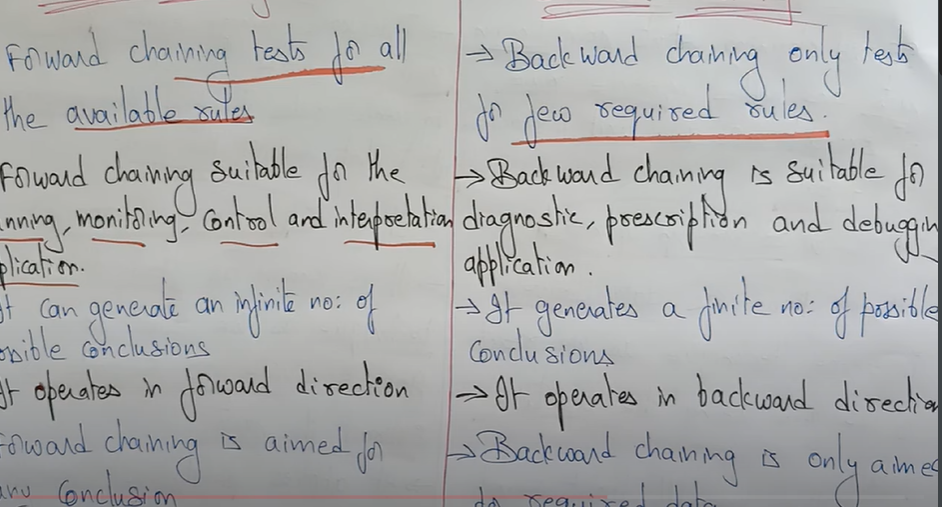 Forward chaining tests for all
the available rules
Forward chaining suitable for the
nning, monitoring, control and interpretation
plication.
It can generate an infinite no: of
ossible conclusions
It operates in forward direction
Forward chaining is aimed for
any conclusion
→ Backward chaining only tests
for few required rules.
→ Backward chaining is suitable for
diagnostic, prescription and debuggin
application.
→ It generates a finite no: of possible
conclusions
→ It operates in backward direction
→ Backward chaining is only aimed
for required data